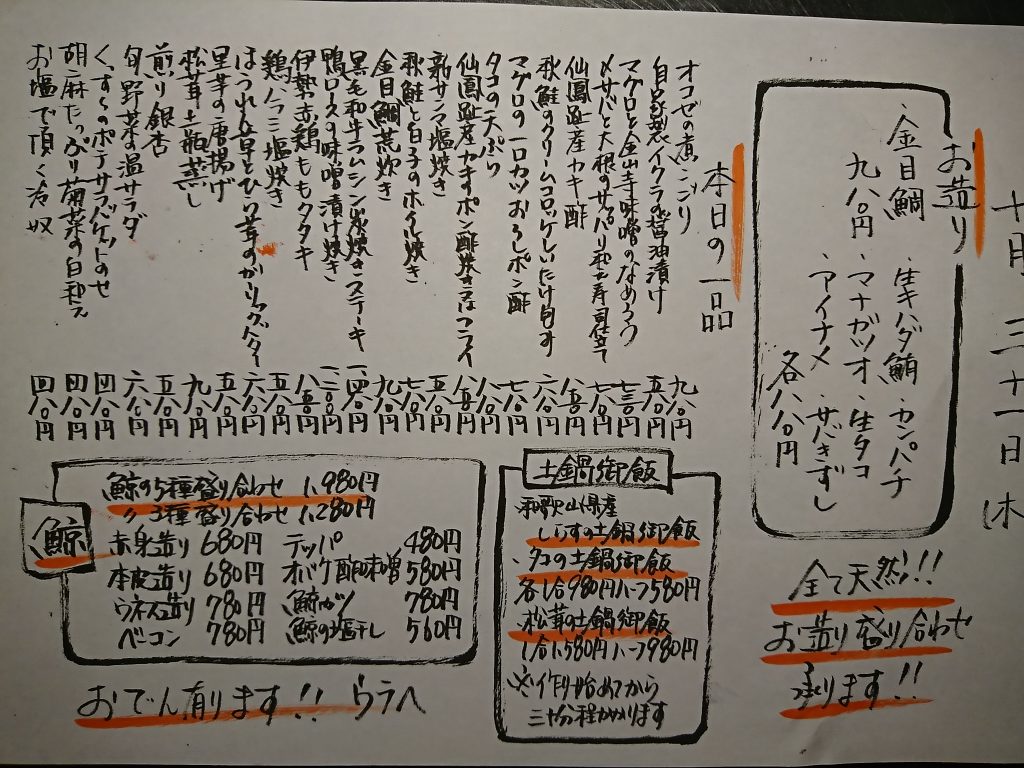 十月三十一日休
お造り
・金目鯛
九八〇円
・生キハダ鮪・カンパチ
・マナガツオ・生タコ
・アイナメ・サバきずし
各八八〇円
全て天然!!
お造り盛り合わせ
承ります!!
本日の一品
オコゼの煮こごり 九八〇円
自家製イクラの醤油漬け 五八〇円
マグロと金山寺味噌のなめろう 七三〇円
〆サバと大根のサッパリ和え寿司仕立て 七八〇円
仙鳳趾産カキ酢 八五〇円
秋鮭のクリームコロッケしいたけ旨す 六八〇円
マグロの一口カツおろしポン酢 七八〇円
タコの天ぷら 八八〇円
仙鳳趾産カキのポン酢焼き又はフライ 八五〇円
新サンマ塩焼き 五八〇円
秋鮭と白子のホイル焼き 七八〇円
金目鯛荒炊き 九八〇円
黒毛和牛ラムシン炭焼きステーキ 一、四八〇円
鴨ロースの味噌漬け焼き 一、二〇〇円
伊勢赤鶏ももタタキ 八五〇円
鶏ハラミ塩焼き 五八〇円
ほうれん草とひら茸のガーリックバター 六八〇円
里芋の唐揚げ 五八〇円
松茸土瓶蒸し 九八〇円
煎り銀杏 五八〇円
旬野菜の温サラダ 六八〇円
くずしのポテサラバケットのせ 四八〇円
胡麻たっぷり菊菜の白和え 四八〇円
お塩で頂く冷奴 四八〇円
土鍋御飯
・和歌山県産
しらすの土鍋御飯
・タコの土鍋御飯
各1合980円ハーフ580円
・松茸の土鍋御飯
1合1,580円ハーフ980円
※作り始めてから
三十分程かかります
鯨
鯨の5種盛り合わせ 1,980円
〃 3種盛り合わせ 1,280円
赤身造り 680円 テッパ 480円
本皮造り 680円 オバケ酢味噌 580円
ウネス造り 780円 鯨カツ 780円
ベーコン 780円 鯨の塩干し 560円
おでん有ります!! ウラへ